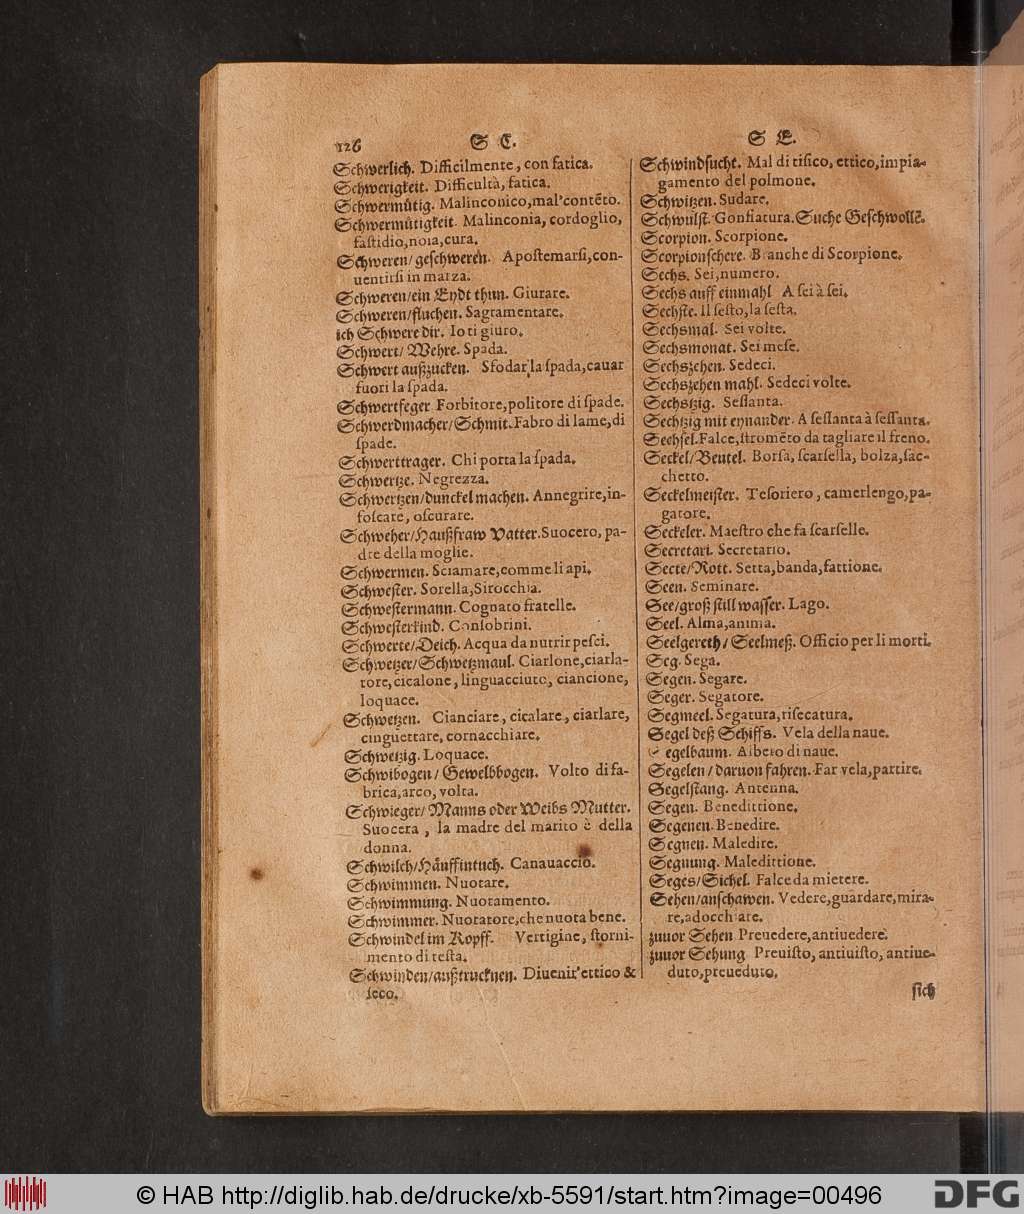 126
S C.
Schwerlich. Difficilmente, con fatica.
Schwerigkeit. Difficultà, fatica.
Schwermůtig. Malinconico, mal'contẽto.
Schwermůtigkeit. Malinconia, cordoglio,
faſtidio, noia, cura.
Schweren/geſchweren. Apoſtemarſi, con-
uentirſi in marza.
Schweren/ein Eydt thun. Giurare.
Schweren/fluchen. Sagramentare.
ich Schwere dir. Io ti giuro.
Schwert/ Wehre. Spada.
Schwert außzucken. Sfodar la ſpada, cauar
fuori la ſpada.
Schwertfeger Forbitore, politore di ſpade.
Schwerdmacher/Schmit. Fabro di lame, di
ſpade.
Schwerttrager. Chi porta la ſpada.
Schwertze. Negrezza.
Schwertzen/dunckel machen. Annegrire, in-
foſcare, oſcurare.
Schweher/Haußfraw Vatter. Suocero, pa-
dre della moglie.
Schwermen. Sciamare, comme li api.
Schweſter. Sorella, Sirocchia.
Schweſtermann. Cognato fratelle.
Schweſterkind. Conſobrini.
Schwerte/Deich. Acqua da nutrir peſci.
Schwetzer/Schwetzmaul. Ciarlone, ciarla-
tore, cicalone, linguacciuto, ciancione,
loquace.
Schwetzen. Cianciare, cicalare, ciarlare,
cinguettare, cornacchiare.
Schwetzig. Loquace.
Schwibogen/ Gewelbbogen. Volto di fa-
brica, arco, volta.
Schwieger/ Manns oder Weibs Mutter.
Suocera, la madre del marito è della
donna.
Schwilch/Håuffintuch. Canauaccio.
Schwimmen. Nuotare.
Schwimmung. Nuotamento.
Schwimmer. Nuotatore, che nuota bene.
Schwindel im Kopff. Vertigine, ſtorni-
mento di teſta.
Schwinden/außtrucknen. Diuenir'ettico &
ſeco.
S E.
Schwindſucht. Mal di tiſico, ettico, impia-
gamento del polmone.
Schwitzen. Sudare.
Schwulſt. Gonfiatura. Suche Geſchwollẽ.
Scorpion. Scorpione.
Scorpionſchere. Branche di Scorpione.
Sechs. Sei, numero.
Sechs auff einmahl A ſei à ſei.
Sechſte. Il ſeſto, la ſeſta.
Sechsmal. Sei volte.
Sechsmonat. Sei meſe.
Sechszehen. Sedeci.
Sechszehen mahl. Sedeci volte.
Sechstzig. Seſſanta.
Sechtzig mit eynander. A ſeſſanta à ſeſſanta.
Sechſel. Falce, ſtromẽto da tagliare il freno.
Seckel/Beutel. Borſa, ſcarſella, bolza, ſac-
chetto.
Seckelmeiſter. Teſoriero, camerlengo, pa-
gatore.
Seckeler. Maeſtro che fa ſcarſelle.
Secretari. Secretario.
Secte/Rott. Setta, banda, fattione.
Seen. Seminare.
See/groß ſtill waſſer. Lago.
Seel. Alma, anima.
Seelgereth/ Seelmeß. Officio per li morti.
Seg. Sega.
Segen. Segare.
Seger. Segatore.
Segmeel. Segatura, riſecatura.
Segel deß Schiffs. Vela della naue.
Segelbaum. Albero di naue.
Segelen/daruon fahren. Far vela, partire.
Segelſtang. Antenna.
Segen. Benedittione.
Segenen. Benedire.
Segnen. Maledire.
Segnung. Maledittione.
Seges/Sichel. Falce da mietere.
Sehen/anſchawen. Vedere, guardare, mira-
re, adocchiare.
zuuor Sehen Preuedere, antiuedere.
zuuor Sehung Preuiſto, antiuiſto, antiue-
duto, preueduto.
ſich
© HAB http://diglib.hab.de/drucke/xb-5591/start.htm?image=00496
DFG